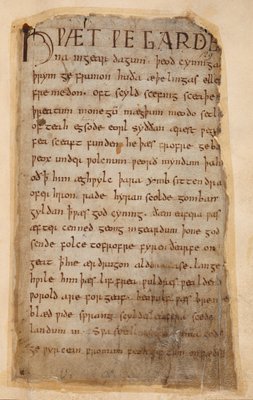 HǷÆT ǷE GARDE
na ingear dagum. þeod cyninga
þrym ge frunon huða æþelingas elle
fre medon. oft scyld scefing sceaþe
þreatum monegū mægþum meodo setla
of teah egsode eorl syððan ærest ƿear
fea sceaft funden he þæs frofre geba
ƿeox under ƿolcnum ƿeorð myndum þah
oð þ̄ him æghƿylc þara ymb sittendra
ofer hron rade hyran scolde gomban
gyldan þ̄ ƿæs god cyning. ðæm eafera ƿæs
æfter cenned geong in geardum þone god
sende folce tofrofre fyren ðearfe on
geat þ̄ hie ær drugon aldor ase. lange
hƿile him þæs lif frea ƿuldres ƿealdend
ƿorold are for geaf. beoƿulf ƿæs breme
blæd ƿide sprang scyldes eafera scede
landum in. Sƿa sceal uma gode
ge ƿyrcean fromum feoh giftum on fæder